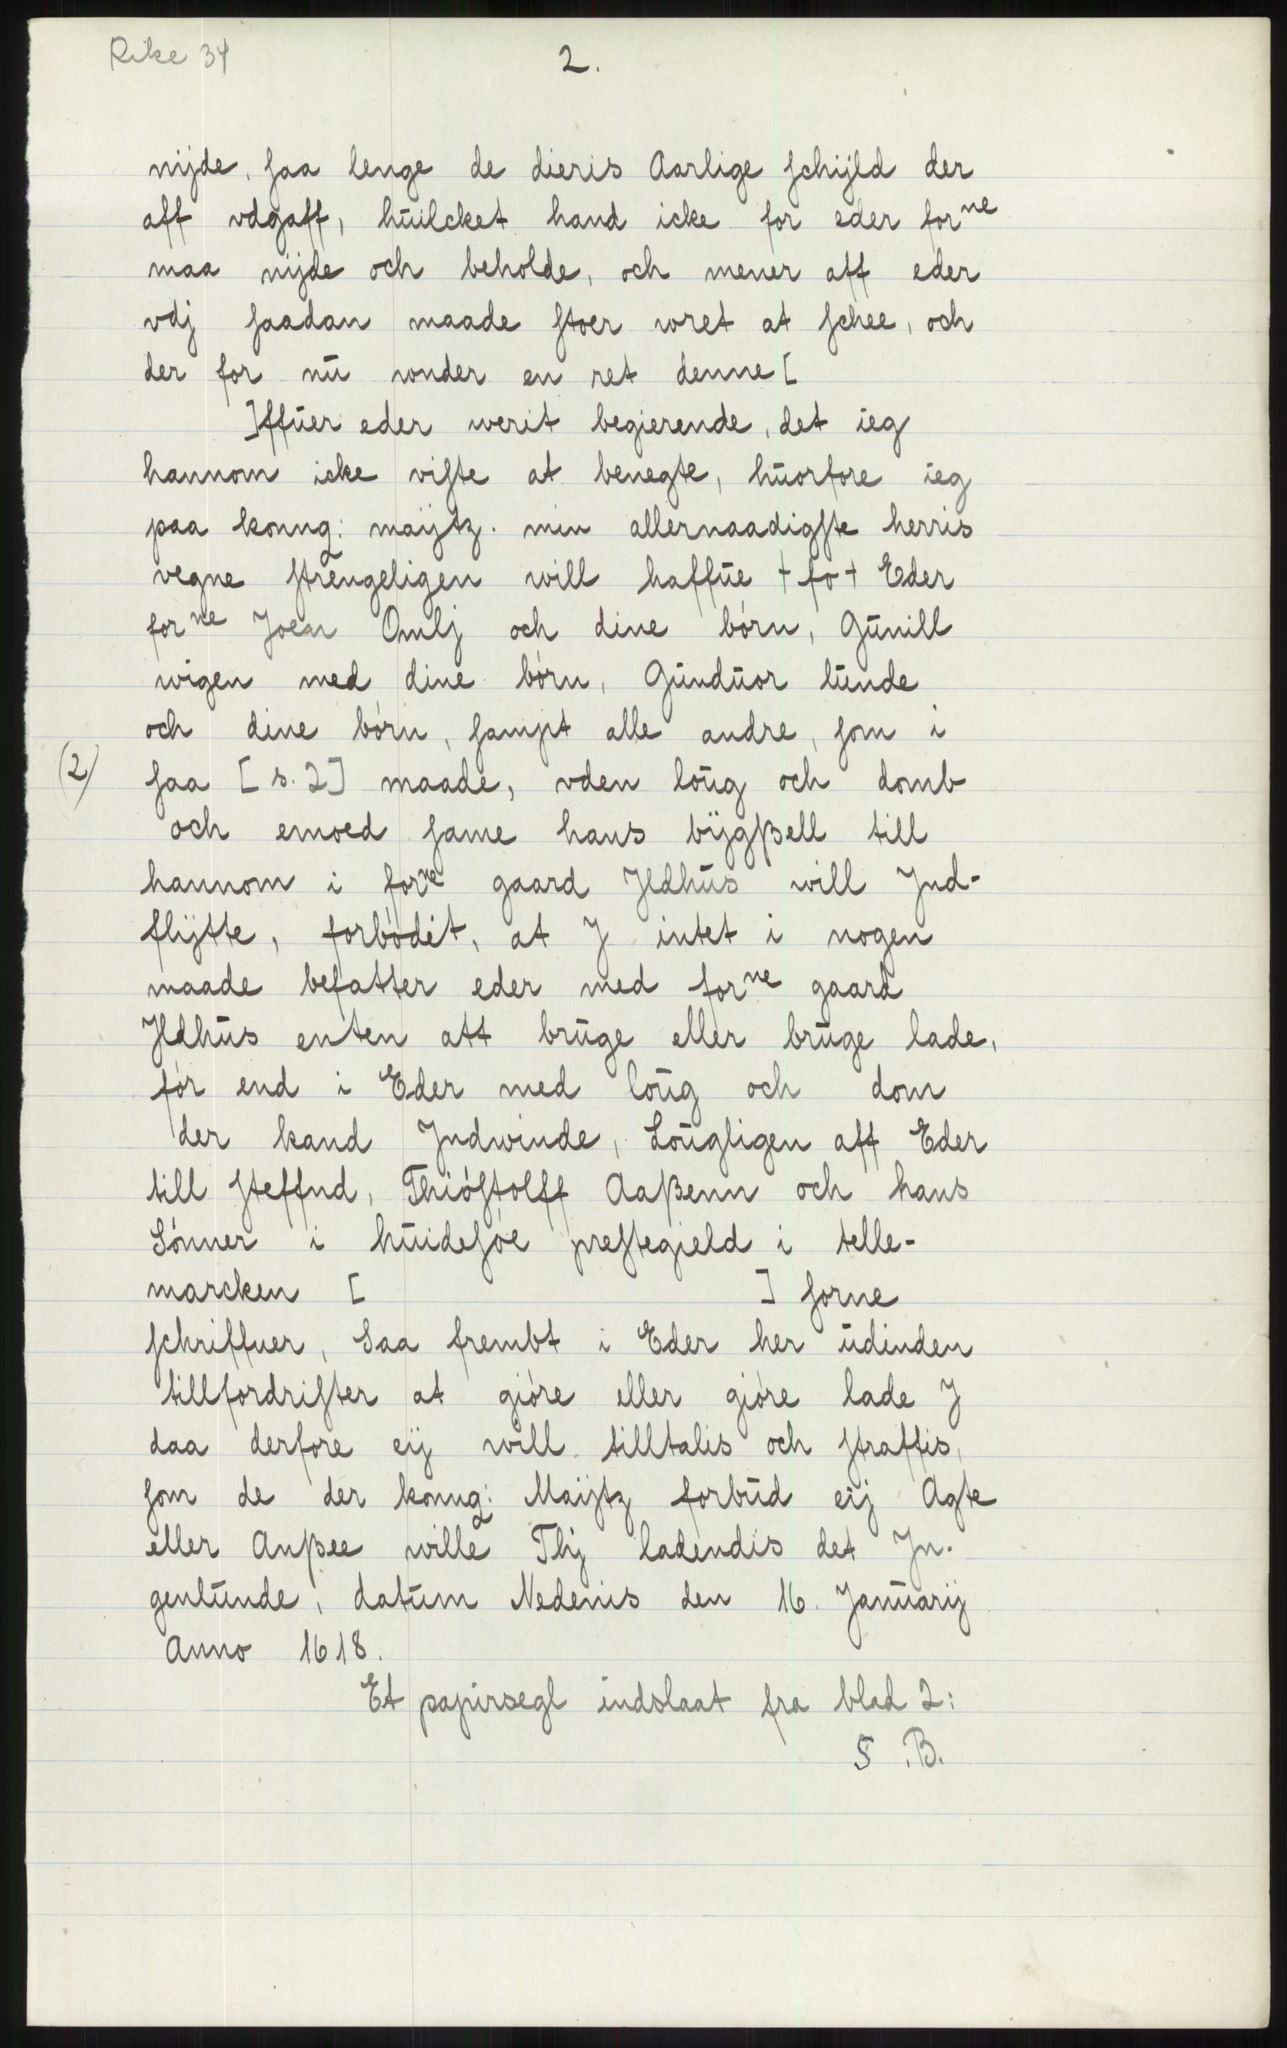 Rike 34
2.
nijde, saa lenge de dieris Aarlige schijld der
aff vdgaff, huilcket hand icke for eder forne
maa nijde och beholde, och mener aff eder
vdj saadan maade stoer wret at schee, och
der for nu wnder en ret denne [
]ffuer eder werit begierende, det ieg
hannom icke viste at benegte, huorfore ieg
paa konng: maijtz. min allernaadigste herris
vegne strengeligen will haffue + fo + Eder
forne Joen Omlj och dine børn, Gunill
wigen med dine børn, Gunduor lunde
och dine børn, sampt alle andre, som i
(2) saa [s. 2] maade, vden loug och domb
och emoed same hans bÿgßell till
hannom i forne gaard Jldhus will Jnd-
flÿtte, forbødét, at J intet i nogen
maade befatter eder med forne gaard
Jldhus enten att bruge eller bruge lade,
før end i Eder med loug och dom
der kand Jndwinde, Lougligen aff Eder
till steffnd, Thiøstolff Aaßenn och hans
Sønner i huidesøe prestegield i telle-
marcken [ ] forne
schriffuer, Saa frembt i Eder her udinden
tillfordrister at giøre eller giøre lade J
daa derfore eij will tilltalis och straffis,
som de der konng: Maijtz forbud eij Agte
eller Anßee wille Thj ladendis det Jn-
genlunde, datum Nedenis den 16. Januarij
Anno 1618.
Et papirsegl indslaat fra blad 2:
S .B.